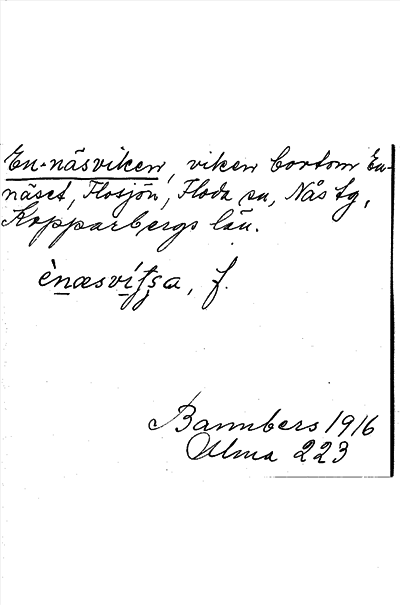 En-näsviken, viken bortom En-
näset, Flosjön, Floda sn, Nås tg,
Kopparbergs län.
ènæsvíʃʂa, f.
Bannbers 1916
Ulma 223